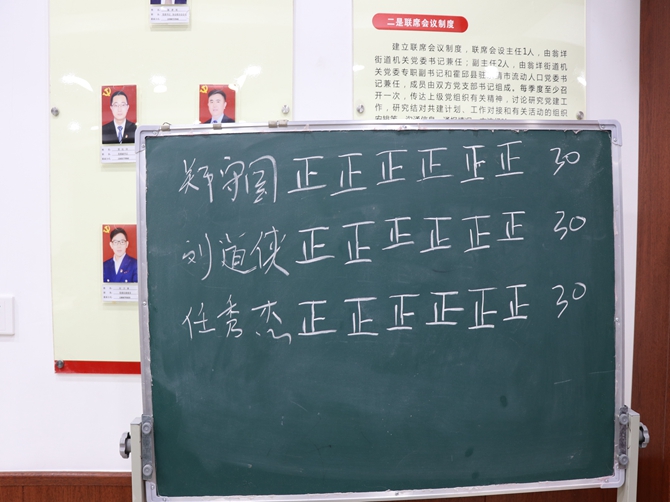 二是联席会议制度
建立联席会议制度，联席会议主任1人，由翁垟
街道机关党委书记兼任；副主任2人，由翁垟街道机
关党委专职副书记和霍邱县驻
清市流动人口党委书
记兼任，成员由双方党支部书记组成。每季度至少召
开一次，传达上级党组织有关精神，讨论研究党建工
作，研究结对共建计划、工作对接和有关活动的组织
郑守国 正 正 正 正 正 正 30
刘道侠 正 正 正 正 正 正 30
任秀杰 正 正 正 正 正 正 30